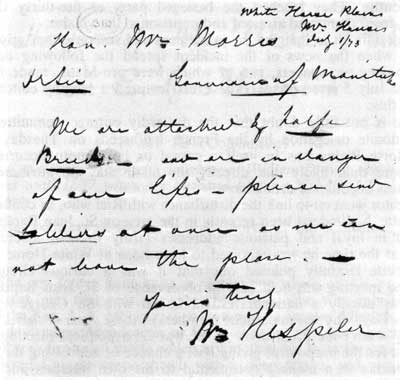 White Horse Plains
Mr. House's
July 1/73
Hon. Mr Morris
Governor of Manitob
We are attacked by halfe
Breeds and are in danger
of our lifes - please send
Soldiers at once as we can
not leave the place. -
Yours truly
Wm Hespeler